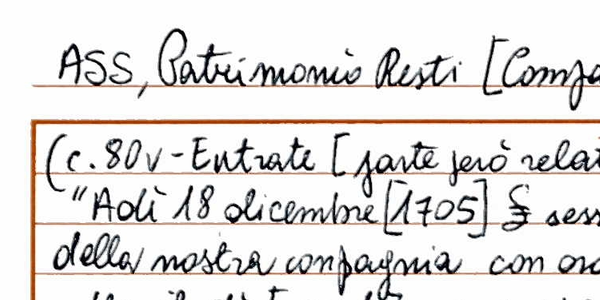 ASS, Patrimonio Resti [Compa
(c. 80v - Entrate [parte però relat
"Adì 18 dicembre [1705] sess
della nostra conpagnia con or